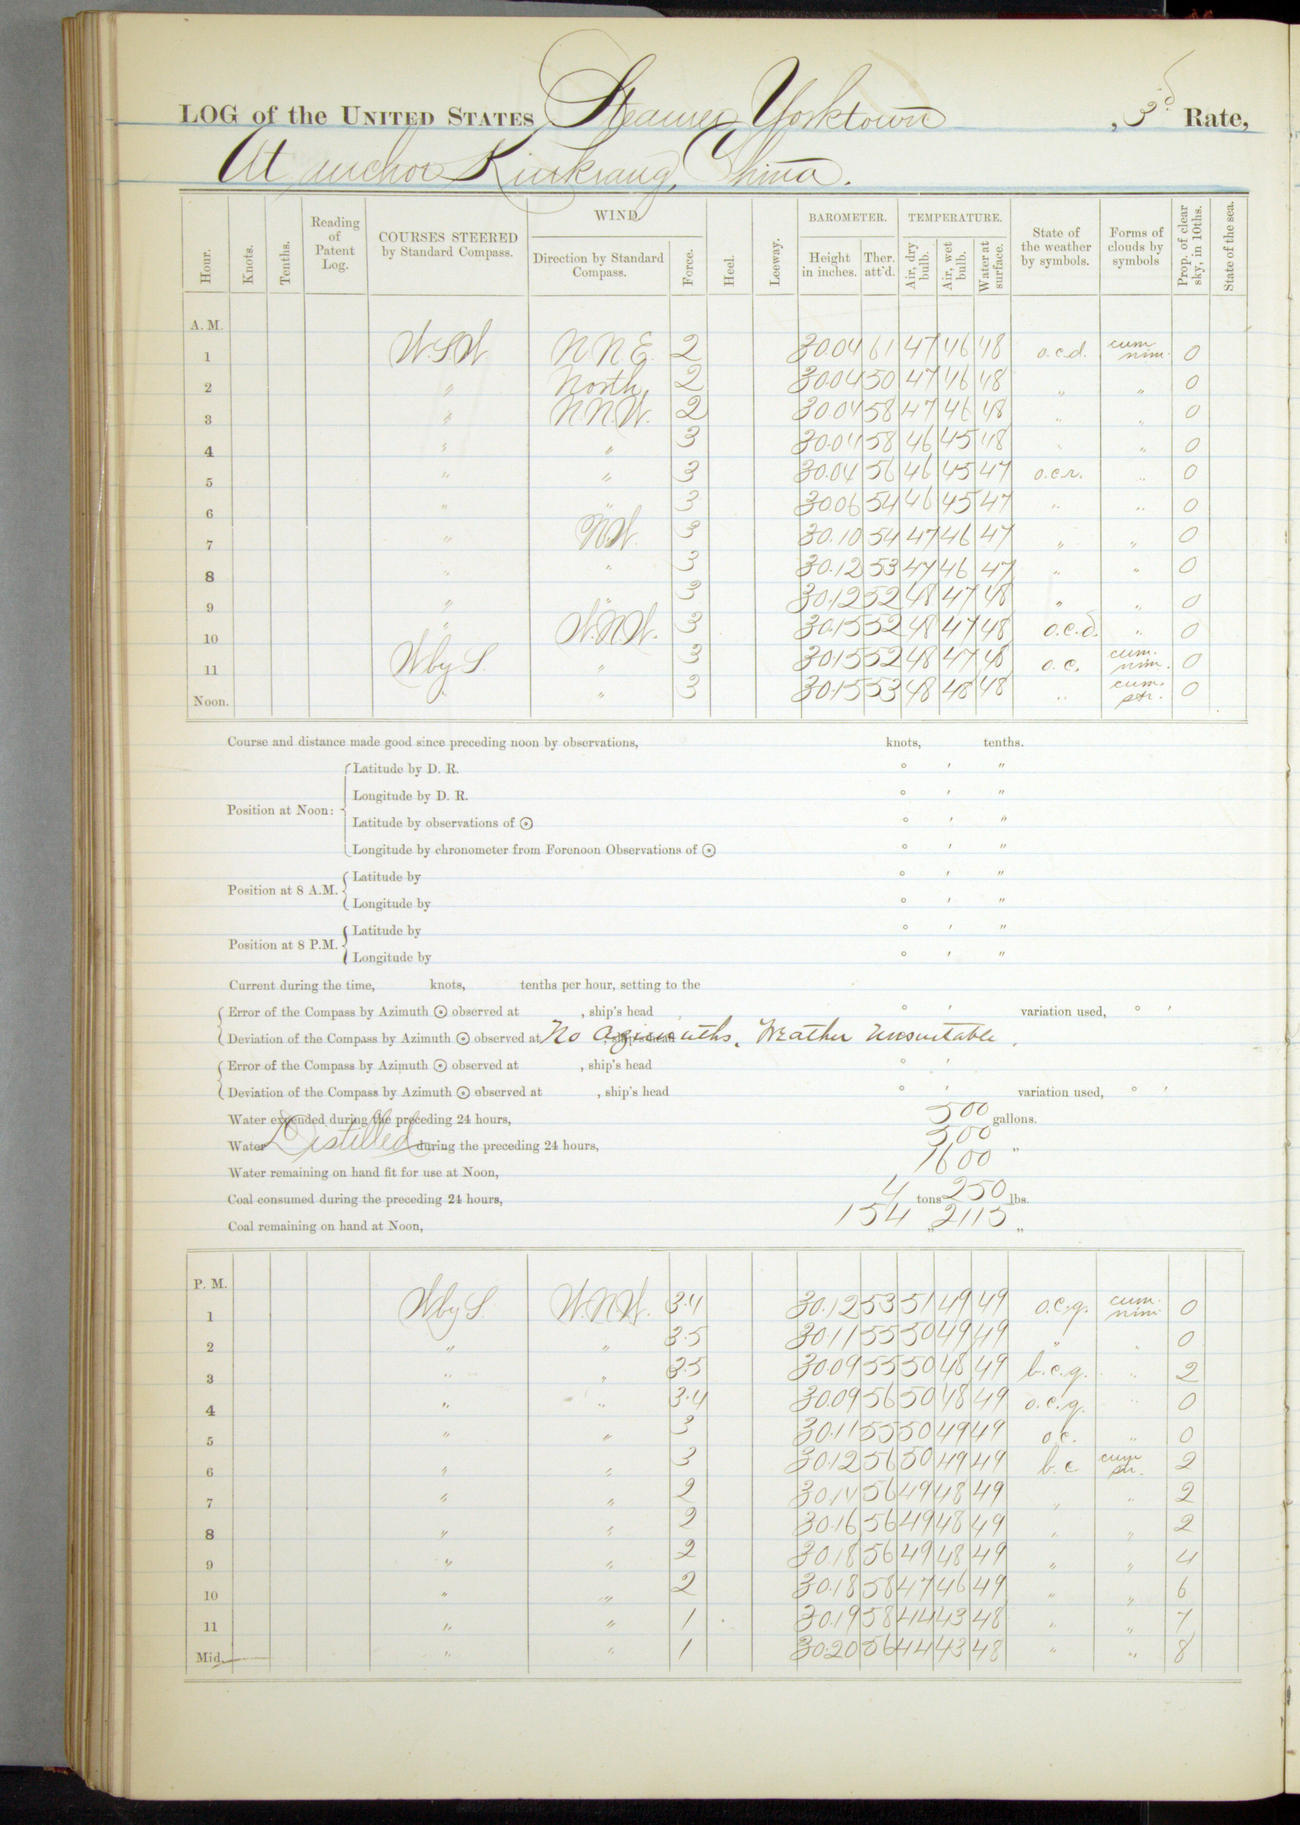 LOG of the UNITED STATES Steamer Yorktown, 3d Rate,
At anchor Kiukiang, China.
Hour. Knots. Tenths. Reading of Patent Log. COURSES STEERED by Standard Compass. WIND. Direction by Standard Compass. Force. Heel. Leeway. BAROMETER. Height in inches. Ther. att'd. TEMPERATURE. Air, dry bulb. Air, wet bulb. Water at surface. State of the weather by symbols. Forms of clouds by symbols Prop. of clear sky, in 10ths. State of the sea.
A. M.
1 W.S.W. N.N.E. 2 30.04 61 47 46 48 o.c.d. cum. nim. 0
2 " North 2 30.04 50 47 46 48 " " 0
3 " N.N.W. 2 30.04 58 47 46 48 " " 0
4 " " 3 30.04 58 46 45 48 " " 0
5 " " 3 30.04 56 46 45 47 o.c.r. " 0
6 " " 3 30.06 54 46 45 47 " " 0
7 " N.W. 3 30.10 54 47 46 47 " " 0
8 " " 3 30.12 53 47 46 47 " " 0
9 " " 3 30.12 52 48 47 48 " " 0
10 " W.N.W. 3 30.15 52 48 47 48 o.c.d. " 0
11 W by S. " 3 30.15 52 48 47 48 o.c. cum. nim. 0
Noon. " " 3 30.15 53 48 48 48 " cum. str. 0
Course and distance made good since preceding noon by observations, knots, tenths.
Position at Noon: Latitude by D. R. ° ′ ″
Longitude by D. R. ° ′ ″
Latitude by observations of ☉ ° ′ ″
Longitude by chronometer from Forenoon Observations of ☉ ° ′ ″
Position at 8 A.M. Latitude by ° ′ ″
Longitude by ° ′ ″
Position at 8 P.M. Latitude by ° ′ ″
Longitude by ° ′ ″
Current during the time, knots, tenths per hour, setting to the
Error of the Compass by Azimuth ☉ observed at , ship's head , ° ′ variation used, ° ′
Deviation of the Compass by Azimuth ☉ observed at , ship's head No Azimuths. Weather Unsuitable.
Error of the Compass by Azimuth ☉ observed at , ship's head ° ′
Deviation of the Compass by Azimuth ☉ observed at , ship's head ° ′ variation used, ° ′
Water expended during the preceding 24 hours, 500 gallons.
Water Distilled during the preceding 24 hours, 300 "
Water remaining on hand fit for use at Noon, 1600
Coal consumed during the preceding 24 hours, 4 tons 250 lbs.
Coal remaining on hand at Noon, 154 " 2115 "
P. M.
1 W by S. W.N.W. 3.4 30.12 53 51 49 49 o.c.q. cum. nim. 0
2 " " 3.5 30.11 55 50 49 49 " " 0
3 " " 3.5 30.09 55 50 48 49 b.c.q. " 2
4 " " 3.4 30.09 56 50 48 49 o.c.q. " 0
5 " " 3 30.11 55 50 49 49 o.c. " 0
6 " " 3 30.12 56 50 49 49 b.c. cum 2
7 " " 2 30.14 56 49 48 49 " " 2
8 " " 2 30.16 56 49 48 49 " " 2
9 " " 2 30.18 56 49 48 49 " " 4
10 " " 2 30.18 58 47 46 49 " " 6
11 " " 1 30.19 58 44 43 48 " " 7
Mid. " " 1 30.20 56 44 43 48 " " 8